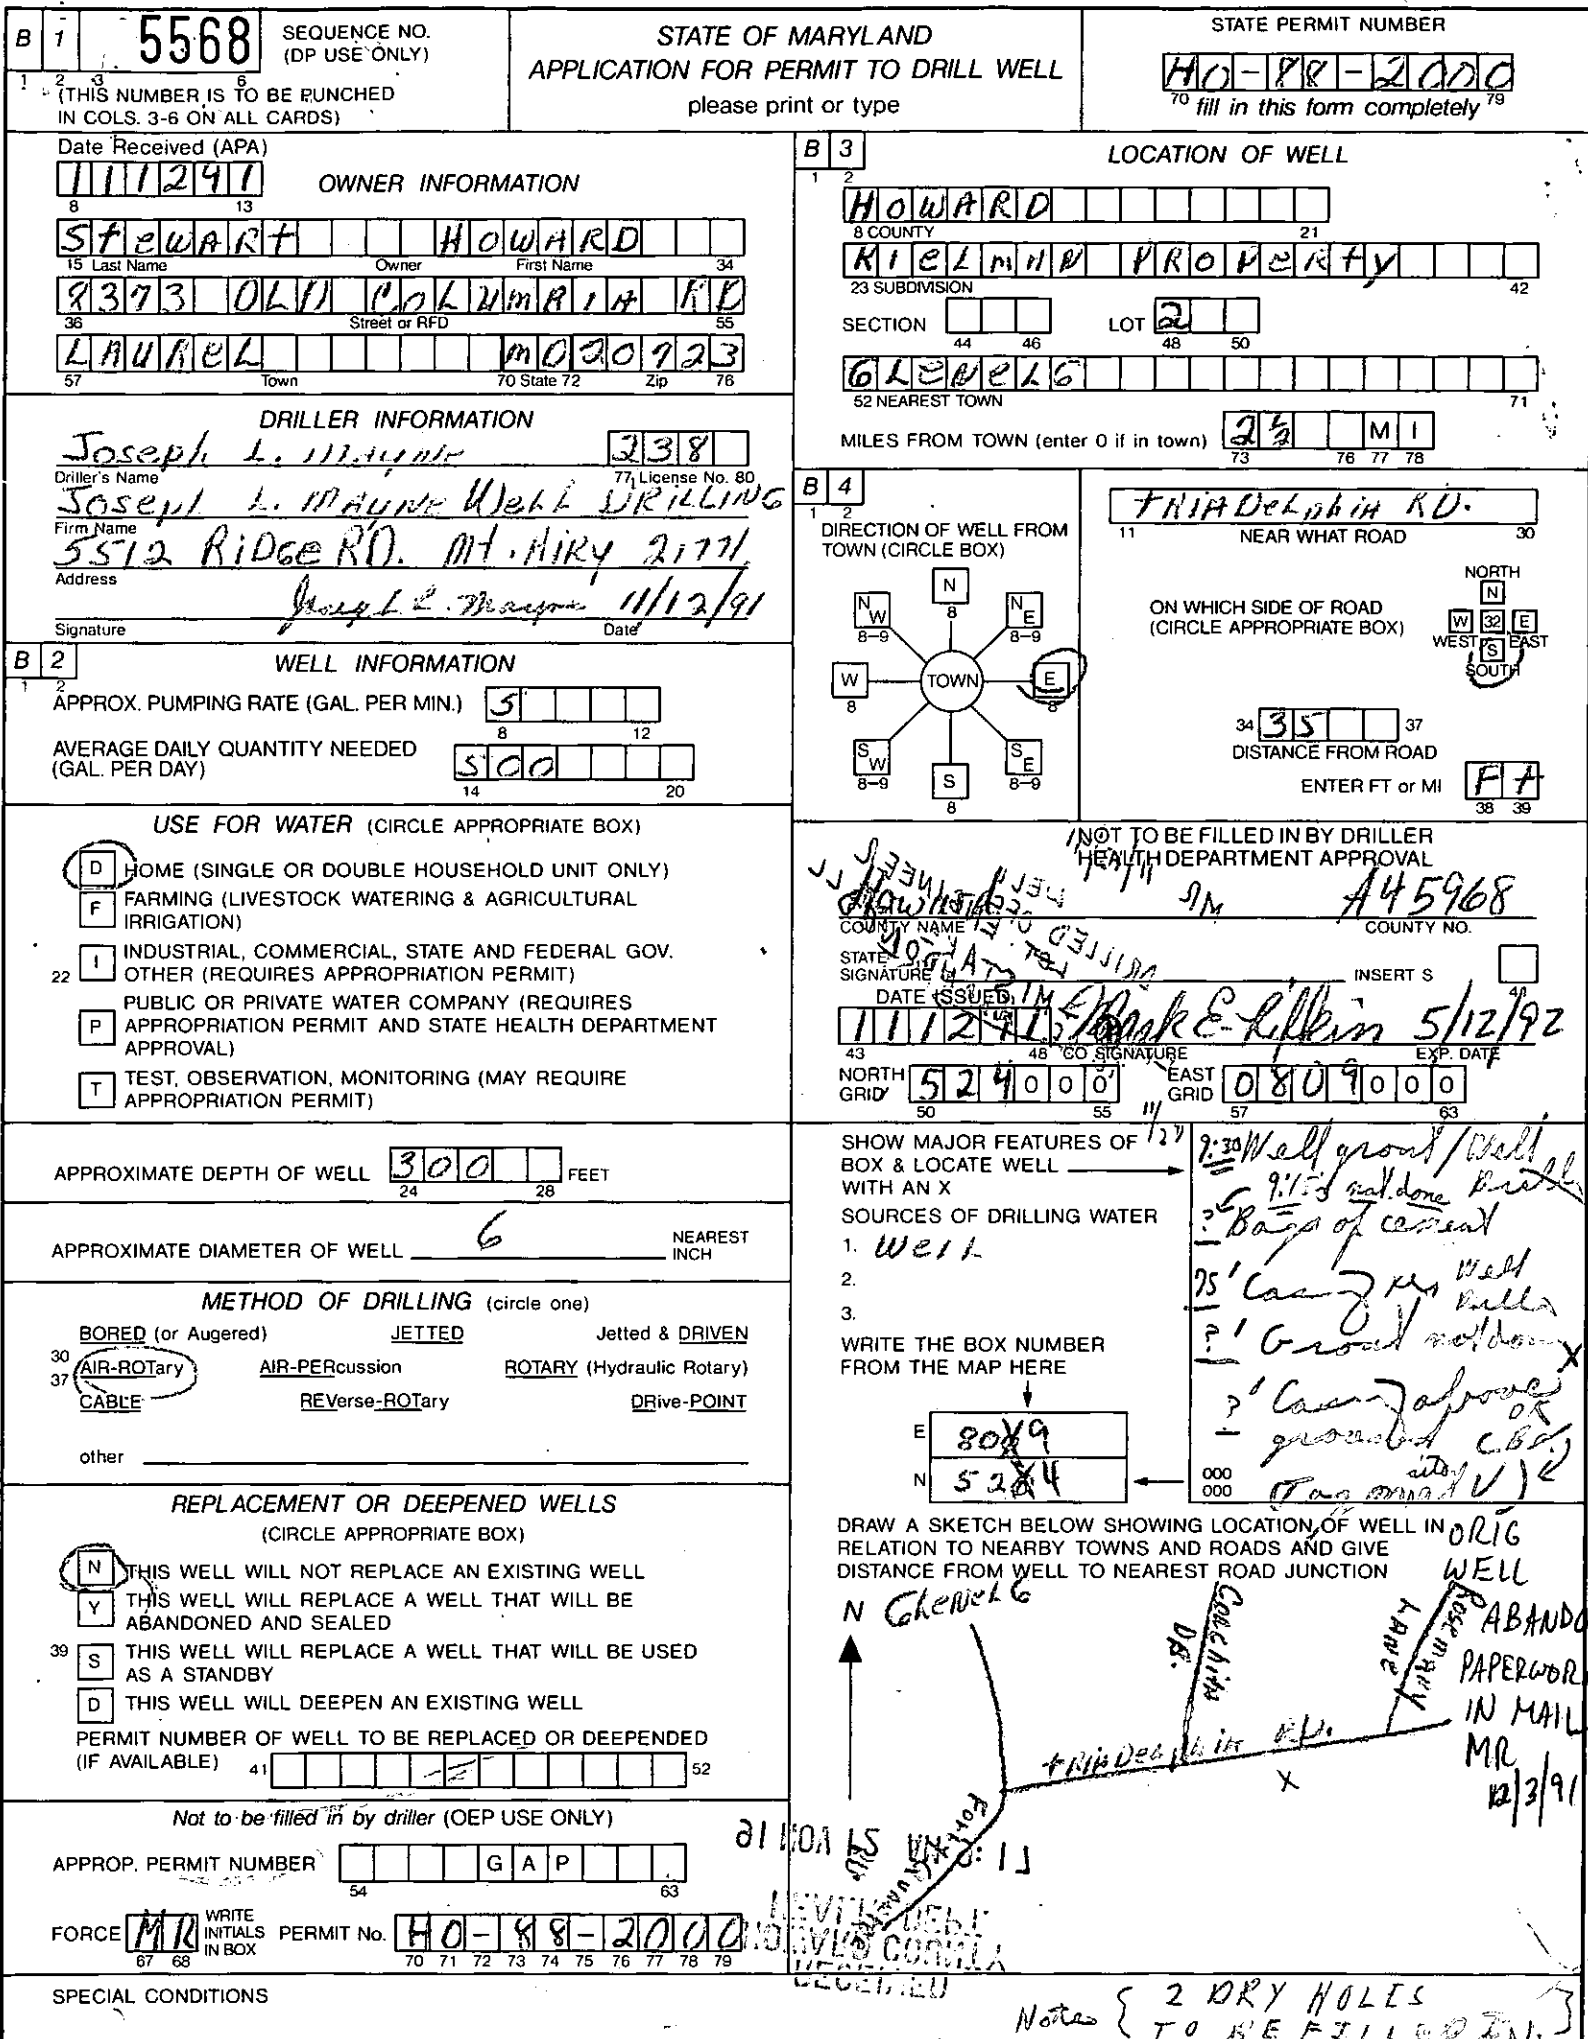 B 1 5568 SEQUENCE NO.
(DP USE ONLY)
1 2 3 6
(THIS NUMBER IS TO BE PUNCHED
IN COLS. 3-6 ON ALL CARDS)
STATE OF MARYLAND
APPLICATION FOR PERMIT TO DRILL WELL
please print or type
STATE PERMIT NUMBER
HO-88-2000
70 fill in this form completely 79
Date Received (APA)
111291
8 13
OWNER INFORMATION
Stewart HOWARD
15 Last Name Owner First Name 34
8373 OLD COLUMBIA RD
36 Street or RFD 55
LAUREL MD20723
57 Town 70 State 72 Zip 76
DRILLER INFORMATION
Joseph L. Mayne 238
Driller's Name 77 License No. 80
Joseph L. MAYNE Well DRILLING
Firm Name
5512 RiDGe RD. Mt. Airy 21771
Address
Joseph L. Mayne 11/12/91
Signature Date
B 2 WELL INFORMATION
1 2
APPROX. PUMPING RATE (GAL. PER MIN.) 5
8 12
AVERAGE DAILY QUANTITY NEEDED
(GAL. PER DAY) 500
14 20
USE FOR WATER (CIRCLE APPROPRIATE BOX)
D HOME (SINGLE OR DOUBLE HOUSEHOLD UNIT ONLY)
F FARMING (LIVESTOCK WATERING & AGRICULTURAL
IRRIGATION)
22 I INDUSTRIAL, COMMERCIAL, STATE AND FEDERAL GOV.
OTHER (REQUIRES APPROPRIATION PERMIT)
P PUBLIC OR PRIVATE WATER COMPANY (REQUIRES
APPROPRIATION PERMIT AND STATE HEALTH DEPARTMENT
APPROVAL)
T TEST, OBSERVATION, MONITORING (MAY REQUIRE
APPROPRIATION PERMIT)
APPROXIMATE DEPTH OF WELL 300 FEET
24 28
APPROXIMATE DIAMETER OF WELL 6 NEAREST
INCH
METHOD OF DRILLING (circle one)
BORED (or Augered) JETTED Jetted & DRIVEN
30 AIR-ROTary AIR-PERcussion ROTARY (Hydraulic Rotary)
37 CABLE REVerse-ROTary DRive-POINT
other
REPLACEMENT OR DEEPENED WELLS
(CIRCLE APPROPRIATE BOX)
N THIS WELL WILL NOT REPLACE AN EXISTING WELL
Y THIS WELL WILL REPLACE A WELL THAT WILL BE
ABANDONED AND SEALED
39 S THIS WELL WILL REPLACE A WELL THAT WILL BE USED
AS A STANDBY
D THIS WELL WILL DEEPEN AN EXISTING WELL
PERMIT NUMBER OF WELL TO BE REPLACED OR DEEPENDED
(IF AVAILABLE) 41 52
Not to be filled in by driller (OEP USE ONLY)
APPROP. PERMIT NUMBER GAP
54 63
FORCE MR WRITE INITIALS IN BOX PERMIT No. HO-88-2000
67 68 70 71 72 73 74 75 76 77 78 79
SPECIAL CONDITIONS
B 3 LOCATION OF WELL
1 2
HOWARD
8 COUNTY 21
KIELMAN PROPERTY
23 SUBDIVISION 42
SECTION LOT 2
44 46 48 50
GLENELG
52 NEAREST TOWN 71
MILES FROM TOWN (enter 0 if in town) 2½ MI
73 76 77 78
B 4
1 2
DIRECTION OF WELL FROM
TOWN (CIRCLE BOX)
N
8
NW NE
8-9 8-9
W TOWN E
8 8
SW SE
8-9 8-9
S
8
TRIADELPHIA RD.
11 NEAR WHAT ROAD 30
ON WHICH SIDE OF ROAD
(CIRCLE APPROPRIATE BOX)
NORTH
N
W 32 E
WEST S EAST
SOUTH
34 35 37
DISTANCE FROM ROAD
ENTER FT or MI Ft
38 39
NOT TO BE FILLED IN BY DRILLER
HEALTH DEPARTMENT APPROVAL
Howard A45968
COUNTY NAME COUNTY NO.
STATE
SIGNATURE INSERT S
DATE ISSUED
111291 Mark E. Rifkin 5/12/92
43 48 CO SIGNATURE EXP. DATE
NORTH
GRID 524000 EAST
GRID 0809000
50 55 57 63
SHOW MAJOR FEATURES OF
BOX & LOCATE WELL
WITH AN X
SOURCES OF DRILLING WATER
1. Well
2.
3.
WRITE THE BOX NUMBER
FROM THE MAP HERE
E 809
N 524
000
000
9:30 Well grout / Well
9:15 not done
? Bags of cement
75' Casing per Well
?' Grout not done
X
?' Casing above
ground OK
DRAW A SKETCH BELOW SHOWING LOCATION OF WELL IN
RELATION TO NEARBY TOWNS AND ROADS AND GIVE
DISTANCE FROM WELL TO NEAREST ROAD JUNCTION
N Glenelg
Rosemary
LANE
TRIADelphia RD.
X
ORIG
WELL
ABANDO
PAPERWOR
IN MAIL
MR
12/3/91
RECEIVED
HOWARD COUNTY
HEALTH DEPT.
Notes { 2 DRY HOLES
TO BE FILLED IN. }